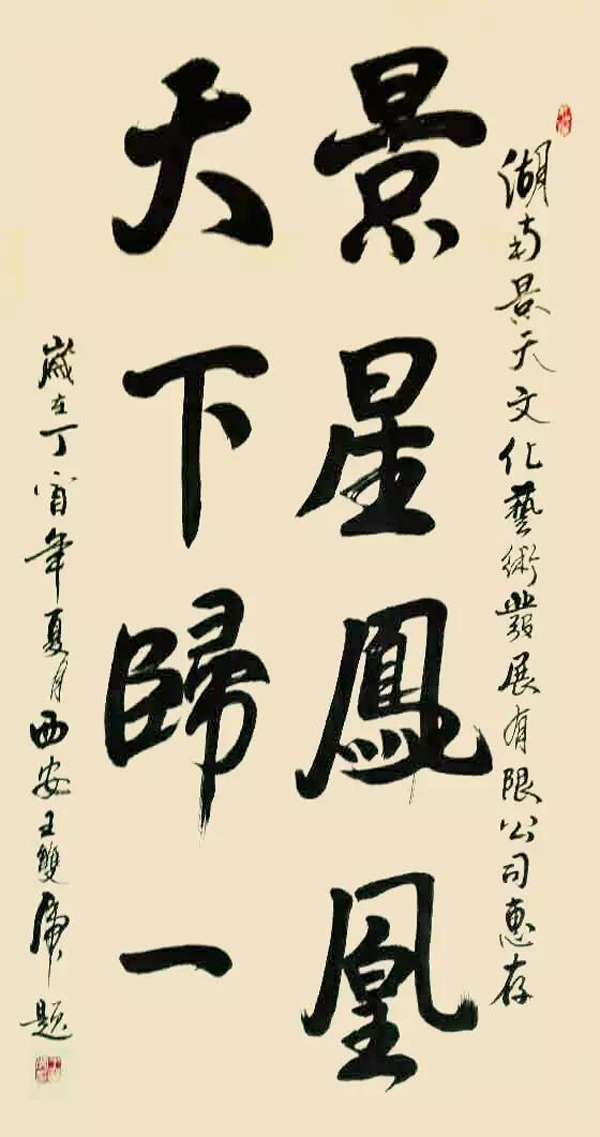 湖南景天文化藝術發展有限公司惠存
景星鳳凰
天下歸一
歲在丁年夏月西安王雙虎題